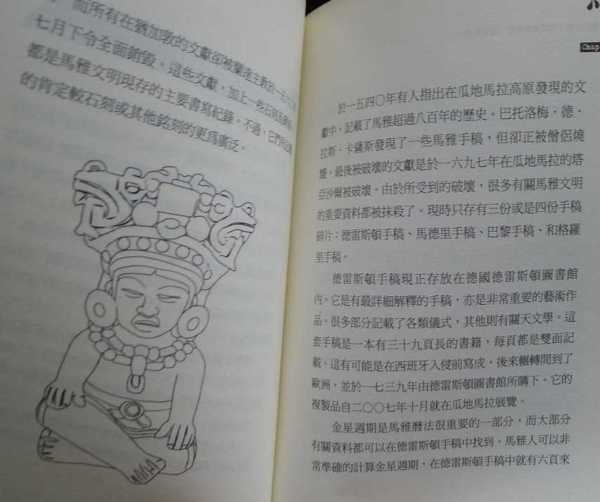 而所有在猶加敦的文獻卻被蘭達主教於一五六
七月下令全面銷毀。這些文獻，加上一些石刻
都是馬雅文明現存的主要書寫紀錄。不過，它們
的肯定較石刻或其他銘刻的更爲廣泛。
Chap
於一五四〇年有人指出在瓜地馬拉高原發現的文
獻中，記載了馬雅超過八百年的歷史。巴托洛梅．德．
拉斯．卡薩斯發現了一些馬雅手稿，但卻正被僧侶燒
毀。最後被破壞的文獻是於一六九七年在瓜地馬拉的塔
亞沙爾被破壞。由於所受到的破壞，很多有關馬雅文明
的重要資料都被抹殺了。現時只存有三份或是四份手稿
碎片：德雷斯頓手稿、馬德里手稿、巴黎手稿、和格羅
里手稿。
德雷斯頓手稿現正存放在德國德雷斯頓圖書館
內。它是有最詳細解釋的手稿，亦是非常重要的藝術作
品。很多部分記載了各類儀式，其他則有關天文學。這
套手稿是一本有三十九頁長的書籍，每頁都是雙面記
載。這有可能是在西班牙入侵前寫成，後來輾轉間到了
歐洲，並於一七三九年由德雷斯頓圖書館所購下。它的
複製品自二〇〇七年十月就在瓜地馬拉展覽。
金星週期是馬雅曆法很重要的一部分，而大部分
有關資料都可以在德雷斯頓手稿中找到。馬雅人可以非
常準確的計算金星週期，在德雷斯頓手稿中就有六頁來